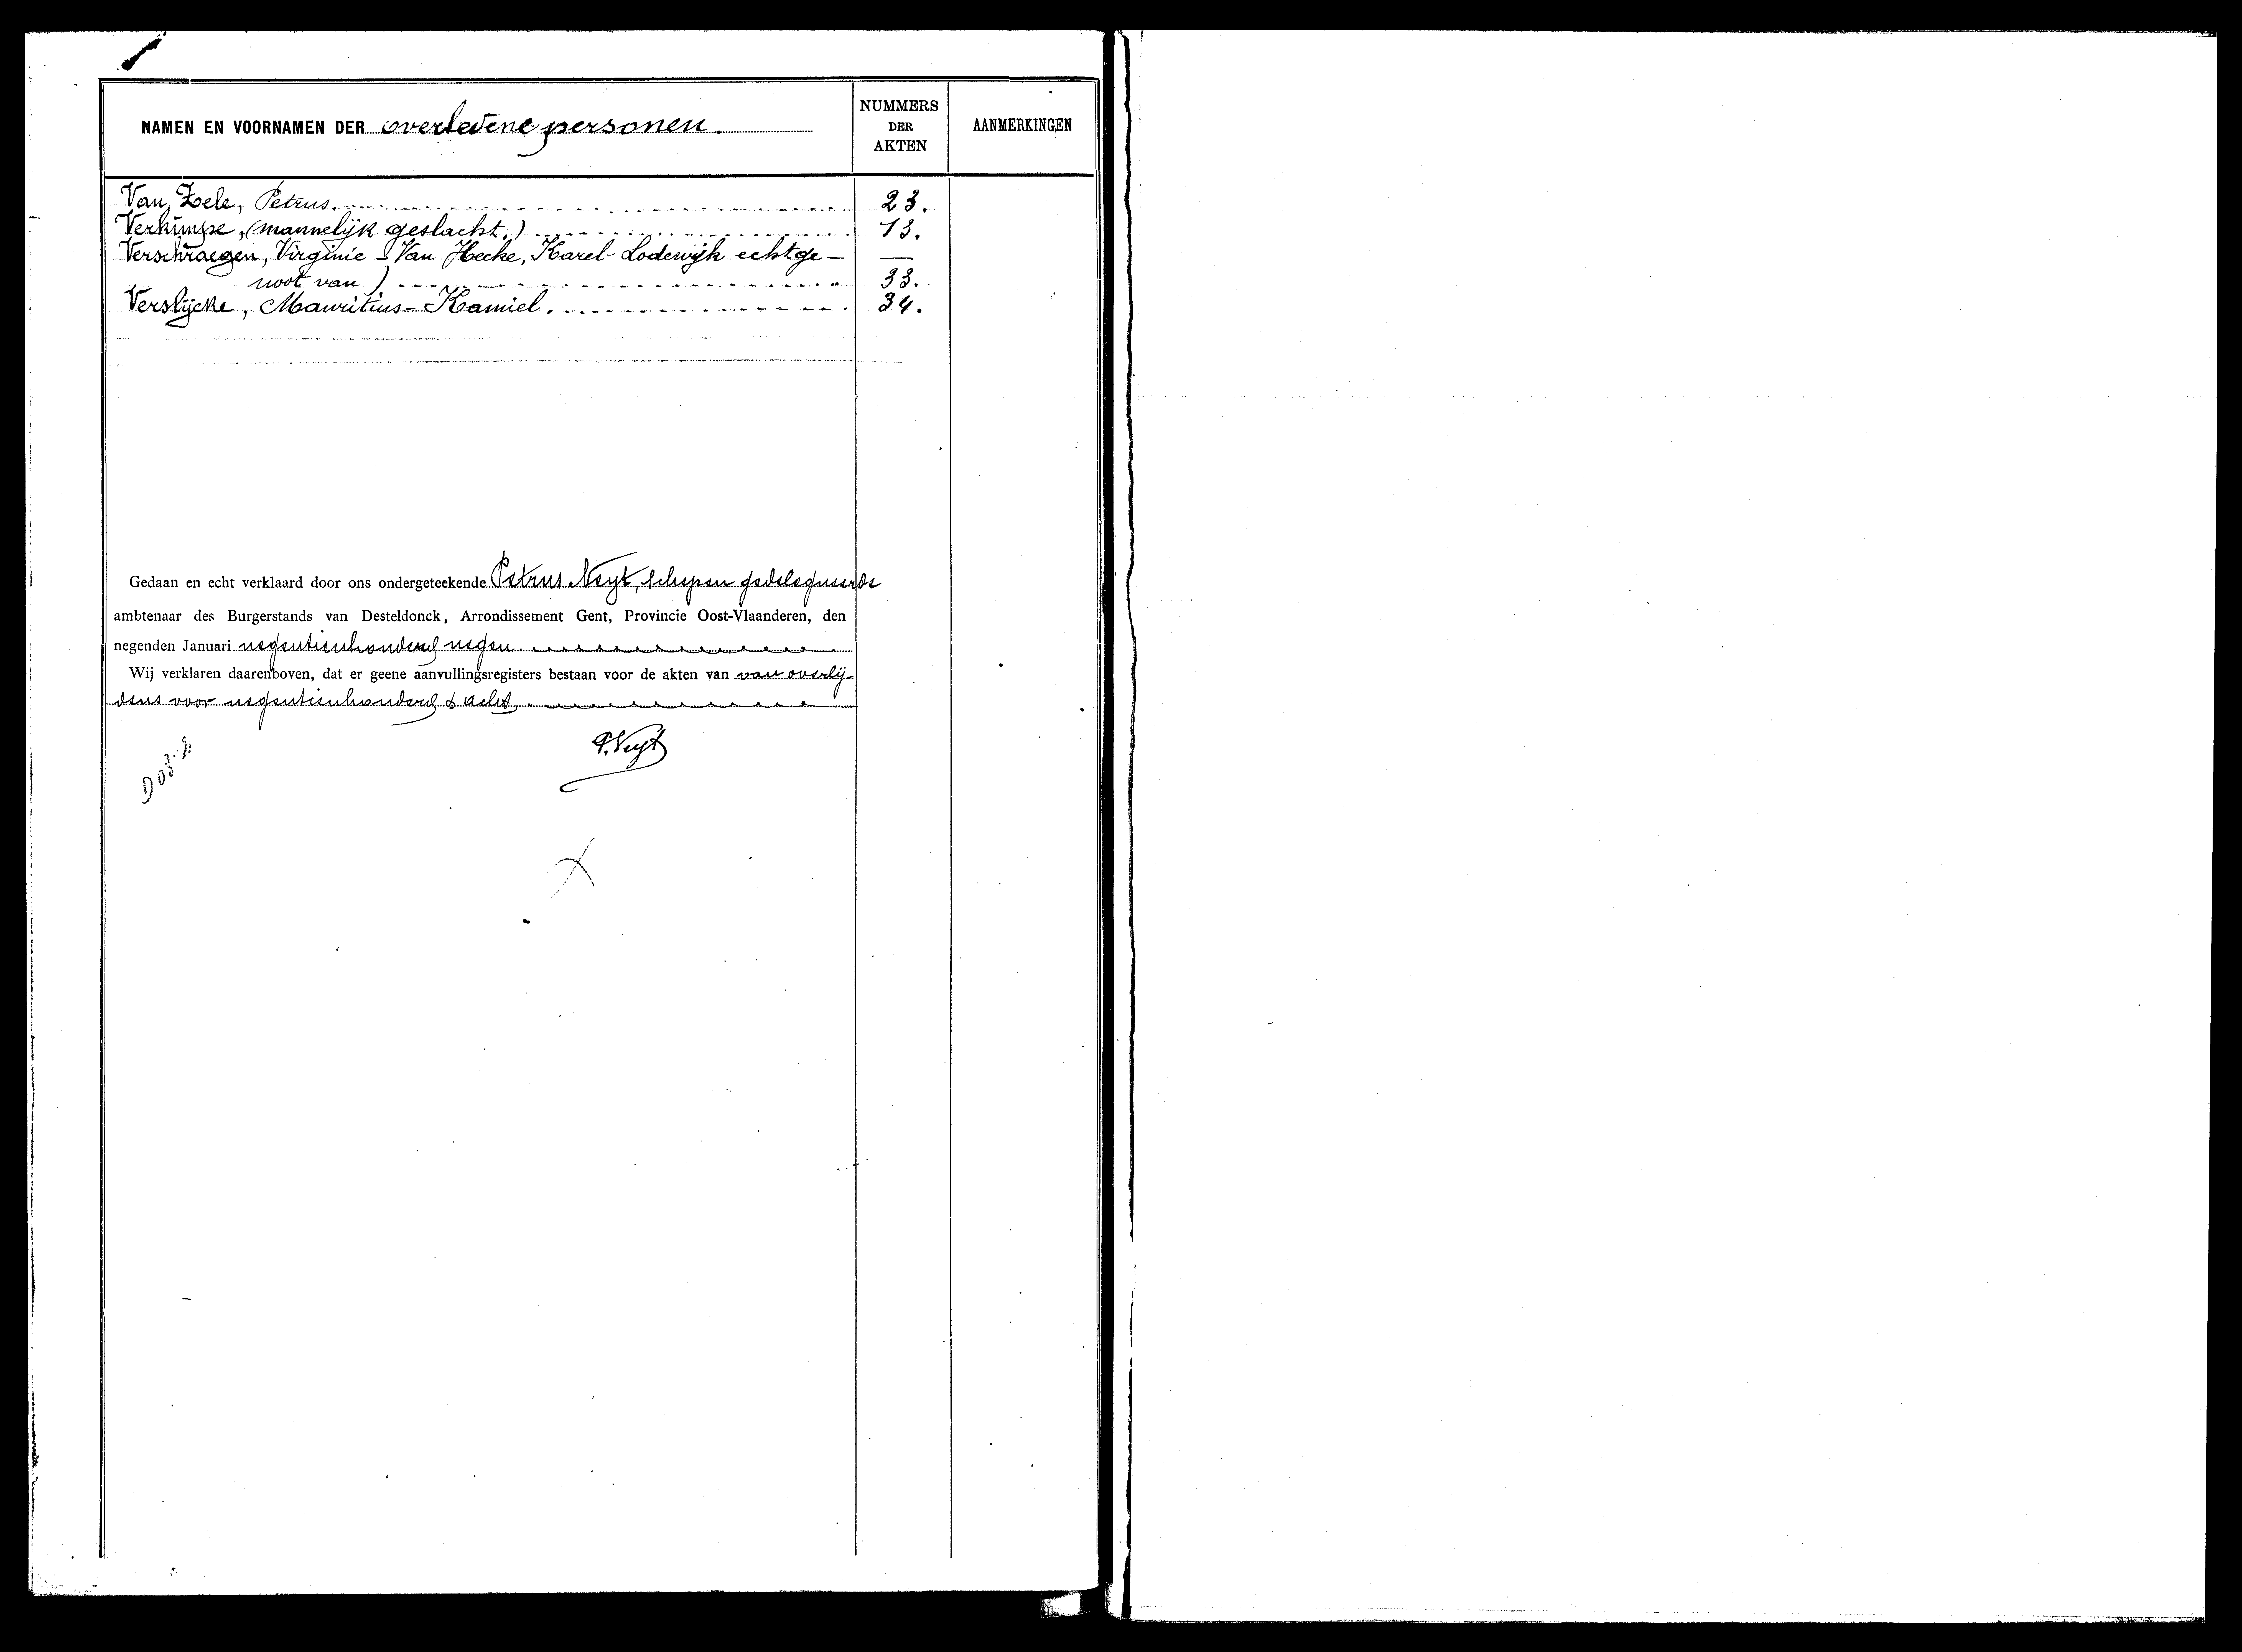 NAMEN EN VOORNAMEN DER overledene personen.
NUMMERS
DER
AKTEN
AANMERKINGEN
Van Zele, Petrus. 23.
Verkimpe, (mannelijk geslacht.) 13.
Verschraegen, Virginie - Van Hecke, Karel-Lodewijk echtge-
noot van) 33.
Verslijcke, Mauritius-Kamiel. 34.
Gedaan en echt verklaard door ons ondergeteekende Petrus Neyt, schepen gedelegueerde
ambtenaar des Burgerstands van Desteldonck, Arrondissement Gent, Provincie Oost-Vlaanderen, den
negenden Januari negentienhonderd negen
Wij verklaren daarenboven, dat er geene aanvullingsregisters bestaan voor de akten van van overlij-
dens voor negentienhonderd & acht.
P. Neyt